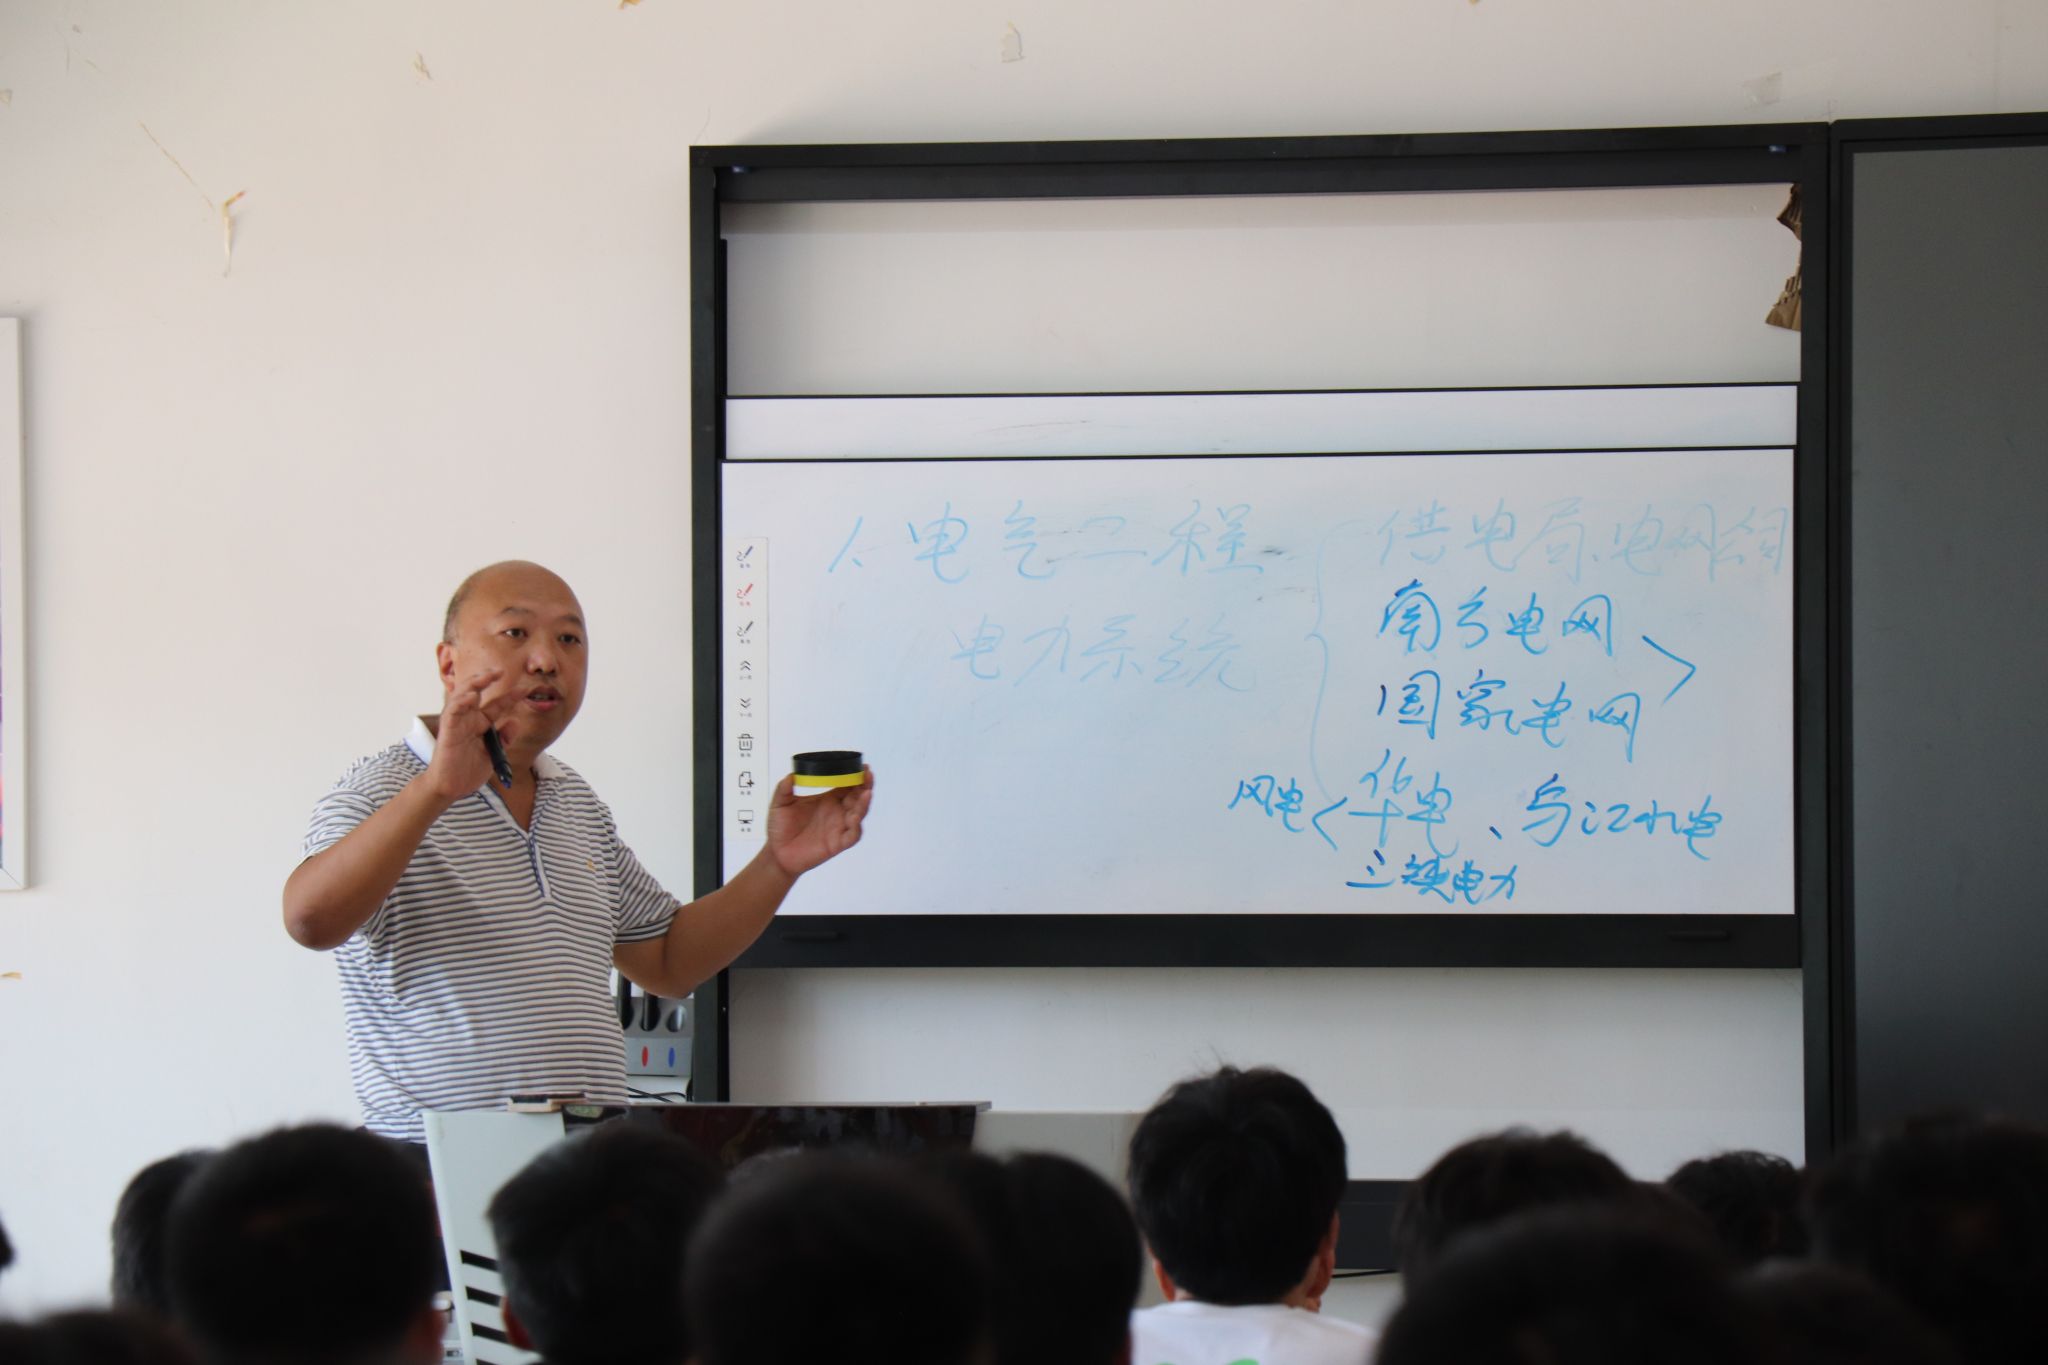 1、电气工程
供电局、电网公司
电力系统
南方电网
国家电网
风电 < 华电、乌江水电
三峡电力